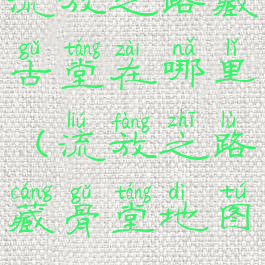 流放之路藏
gǔ táng zài nǎ lǐ
古堂在哪里
liú fàng zhī lù
（流放之路
cáng gǔ táng dì tú
藏骨堂地图